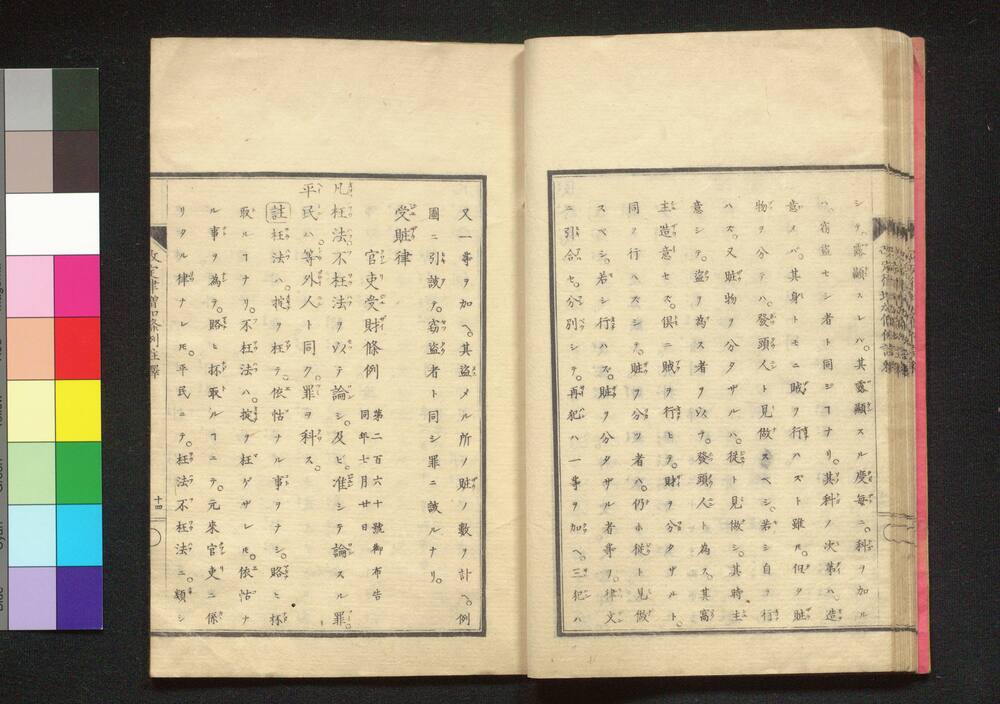 シ。露顯スレバ。其露顯スル度毎ニ。科ヲ加ル
ハ。窃盗セシ者ト同ジヿナリ。其科ノ次第ハ。造
意メバ。其身トモニ賊ヲ行ハズト雖ㇳモ。但タ賍
物ヲ分テバ。發頭人ト見做スベシ。若シ自ラ行
ハズ。又賍物ヲ分タザルハ。從ト見做シ。其時主
意シテ。盗ヲ為ス者ヲ以テ。發頭人ト為ス。其窩
主造意セズ。倶ニ賊ヲ行ヒテ。財ヲ分タザルト。
同ク行ハズシテ。賍ヲ分ツ者ハ。仍ホ從ト見做
スベシ。若シ行ハズ。賍ヲ分タザル者等ヲ。律文
ニ引合セ。分別シテ。再犯ハ一等ヲ加ヘ。三犯ハ
又一等ヲ加ヘ。其盗メル所ノ賍ノ數ヲ計ヘ。例
圖ニ引該テ。窃盗者ト同シ罪ニ該ルナリ。
受賍律
官吏受財條例
第二百六十號御布告
同年七月廿日
凡枉法不枉法ヲ以テ論シ。及ビ准シテ論スル罪。
平民ハ。等外人ト同ク。罪ヲ科ス。
註 枉法ハ。掟ヲ枉テ。依怙ナル事ヲナシ。賂ヒ抔
取ルヿナリ。不枉法ハ。掟ヲ枉ゲザレㇳモ。依怙ナ
ル事ヲ為テ。賂ヒ抔取ルヿニテ。元来官吏ニ係
リタル律ナレㇳモ。平民ニテ。枉法不枉法ニ。類シ
改定律增加條例註釋
十四